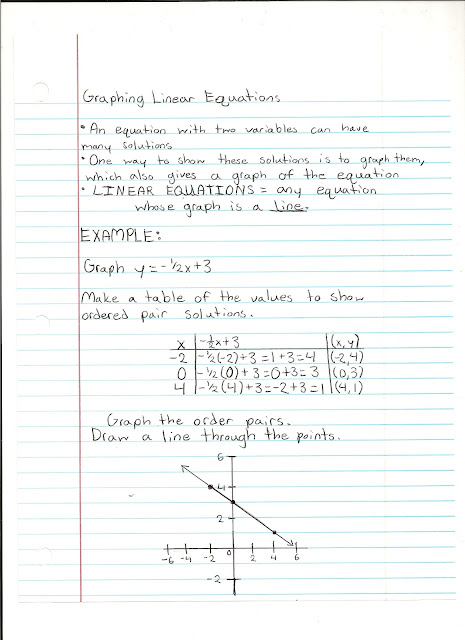 Graphing Linear Equations
• An equation with two variables can have
many solutions
• One way to show these solutions is to graph them,
which also gives a graph of the equation
• LINEAR EQUATIONS = any equation
whose graph is a line.
EXAMPLE:
Graph y=-1/2x+3
Make a table of the values to show
ordered pair solutions.
x | -1/2x+3 | (x, y)
-2 | -1/2(-2)+3=1+3=4 | (-2,4)
0 | -1/2(0)+3=0+3=3 | (0,3)
4 | -1/2(4)+3=-2+3=1 | (4,1)
Graph the order pairs.
Draw a line through the points.
6
4
2
-6 -4 -2 0 2 4 6
-2